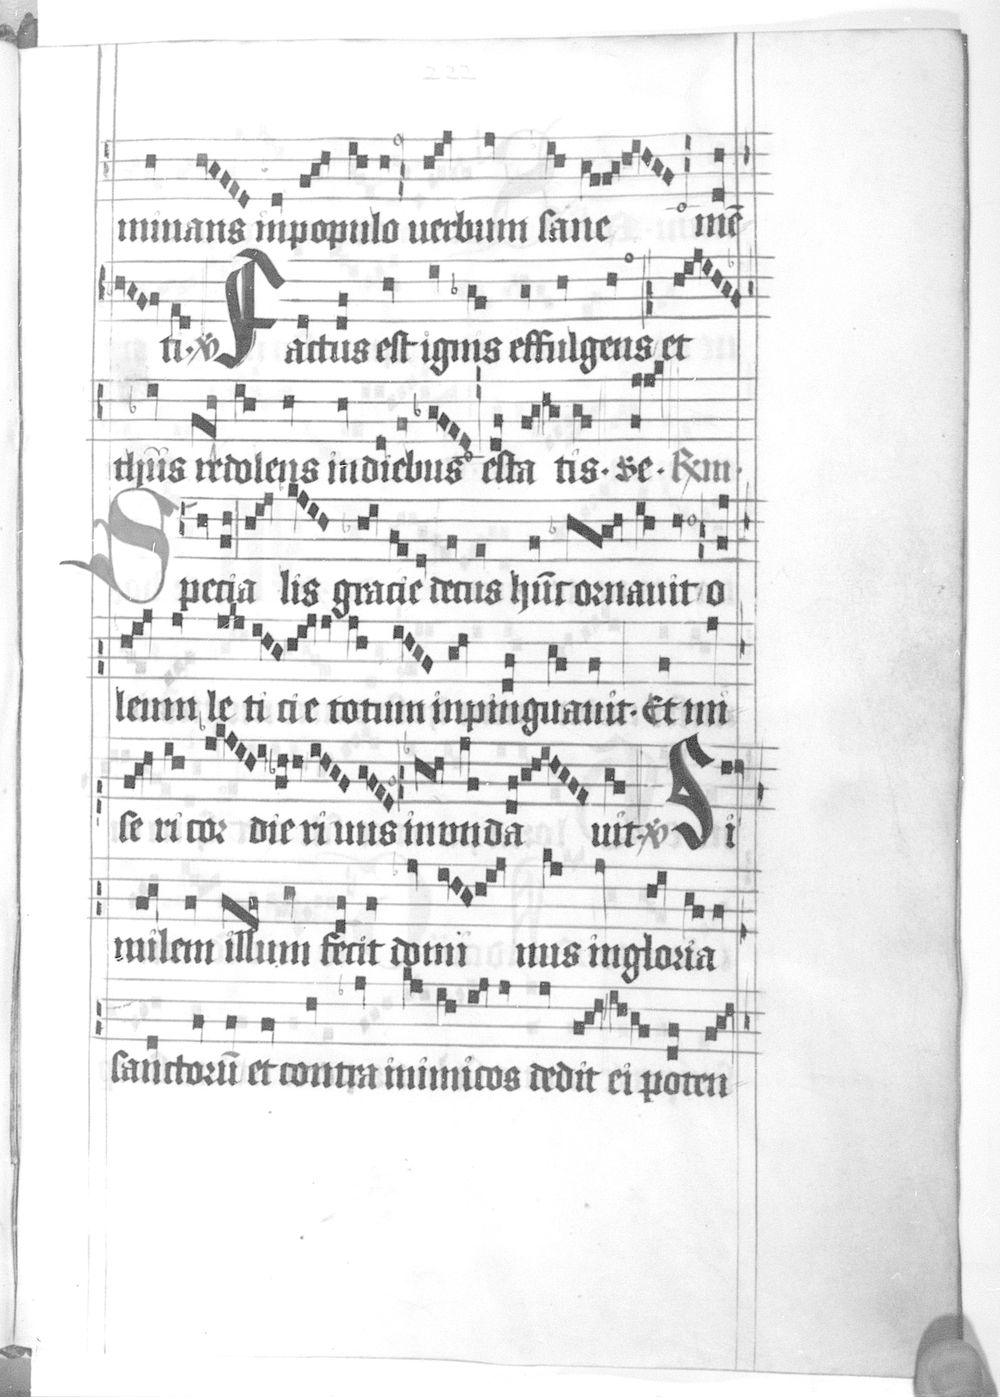 222
minans inpopulo uerbum sanc mē
ti. ꝟ Factus est ignis effulgens et
thus redolens indiebus esta tis. Se.
Specia lis gracie decus hūc ornauit o
leum le ti ci e totum inpinguauit. Et mi
se ri cor die ri uus inunda uit. ꝟ Si
milem illum fecit domi nus ingloria
sanctorū et contra inimicos dedit ei poten